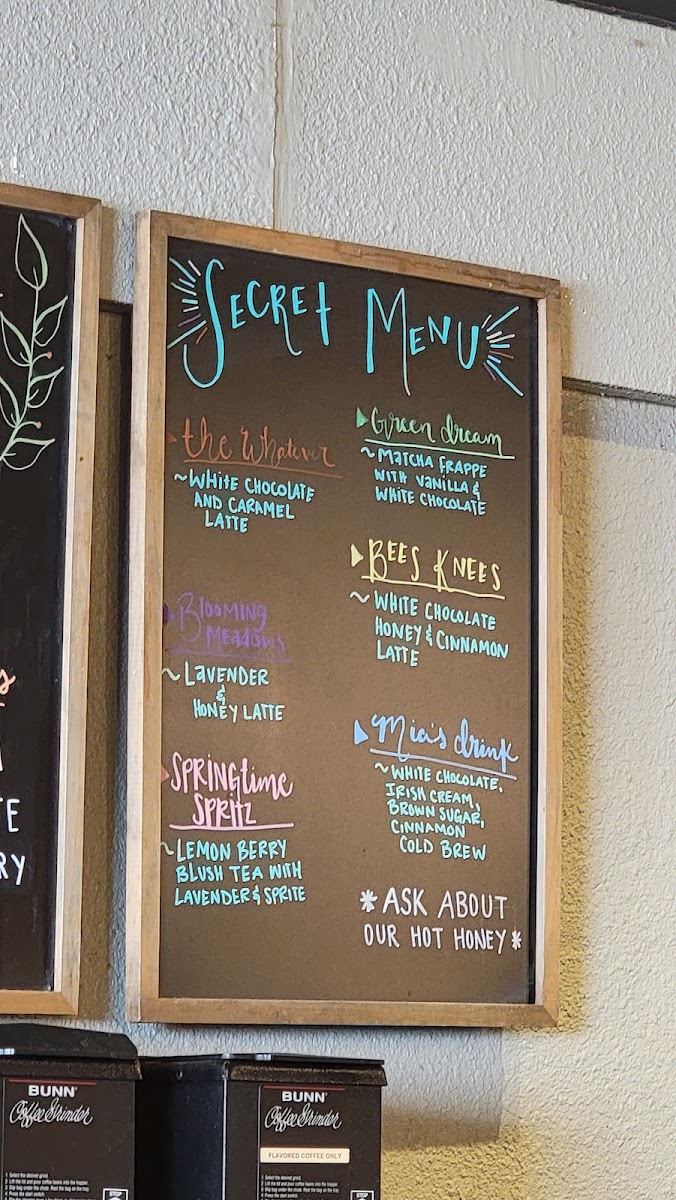 SECRET MENU
the Whatever
~WHITE CHOCOLATE
AND CARAMEL
LATTE
Blooming
MEADOWS
~LAVENDER
&
HONEY LATTE
SPRINGtime
SPRITZ
~LEMON BERRY
BLUSH TEA WITH
LAVENDER & SPRITE
Green dream
~MATCHA FRAPPE
WITH VANILLA &
WHITE CHOCOLATE
BEES KNEES
~WHITE CHOCOLATE
HONEY & CINNAMON
LATTE
Mia's drink
~WHITE CHOCOLATE,
IRISH CREAM,
BROWN SUGAR,
CINNAMON
COLD BREW
*ASK ABOUT
OUR HOT HONEY*
BUNN
Coffee Grinder
BUNN
Coffee Grinder
FLAVORED COFFEE ONLY
1 Select the desired grind.
STOP
1 Select the desired grind.
STOP